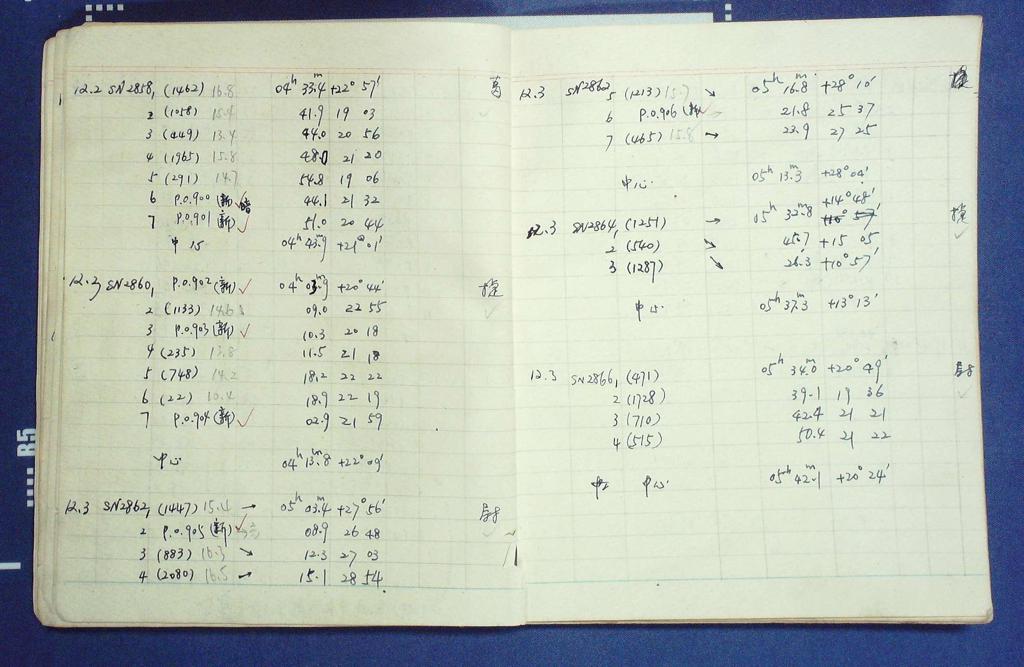 12.2 SN2858, (1462) 16.8 04h 33.4m +22° 57' 葛
2 (1058) 15.4 41.9 19 03
3 (449) 13.4 44.0 20 56
4 (1965) 15.8 48.0 21 20
5 (291) 14.7 54.8 19 06
6 P.O.900 (新) 44.1 21 32
7 P.O.901 (新) ✓ 51.0 20 44
中心 04h 43.9m +21° 01'
12.3 SN2860, P.O.902 (新) ✓ 04h 03.9m +20° 44'
2 (1133) 14.6 09.0 22 55
3 P.O.903 (新) ✓ 10.3 20 18
4 (235) 13.8 11.5 21 18
5 (748) 14.2 18.2 22 22
6 (22) 10.4 18.9 22 19
7 P.O.904 (新) ✓ 02.9 21 59
中心 04h 13.8m +22° 09'
12.3 SN2862, (1447) 15.4 → 05h 03.4m +27° 56'
2 P.O.905 (新) ✓ 08.9 26 48
3 (883) 16.3 ↘ 12.3 27 03
4 (2080) 16.5 → 15.1 28 54
12.3 SN2862 5 (1213) 15.7 ↘ 05h 16.8m +28° 10'
6 P.O.906 (新) ✓ 21.8 25 37
7 (465) 15.8 → 23.9 27 25
中心 05h 13.3m +28° 04'
12.3 SN2864, (1251) → 05h 32.8m +14° 48'
2 (540) ↘ 45.7 +15 05
3 (1287) ↘ 26.3 +10° 57'
中心 05h 37.3m +13° 13'
12.3 SN2866, (471) 05h 34.0m +20° 49'
2 (1728) 39.1 19 36
3 (710) 42.4 21 21
4 (515) 50.4 21 22
中心 05h 42.1m +20° 24'
B5